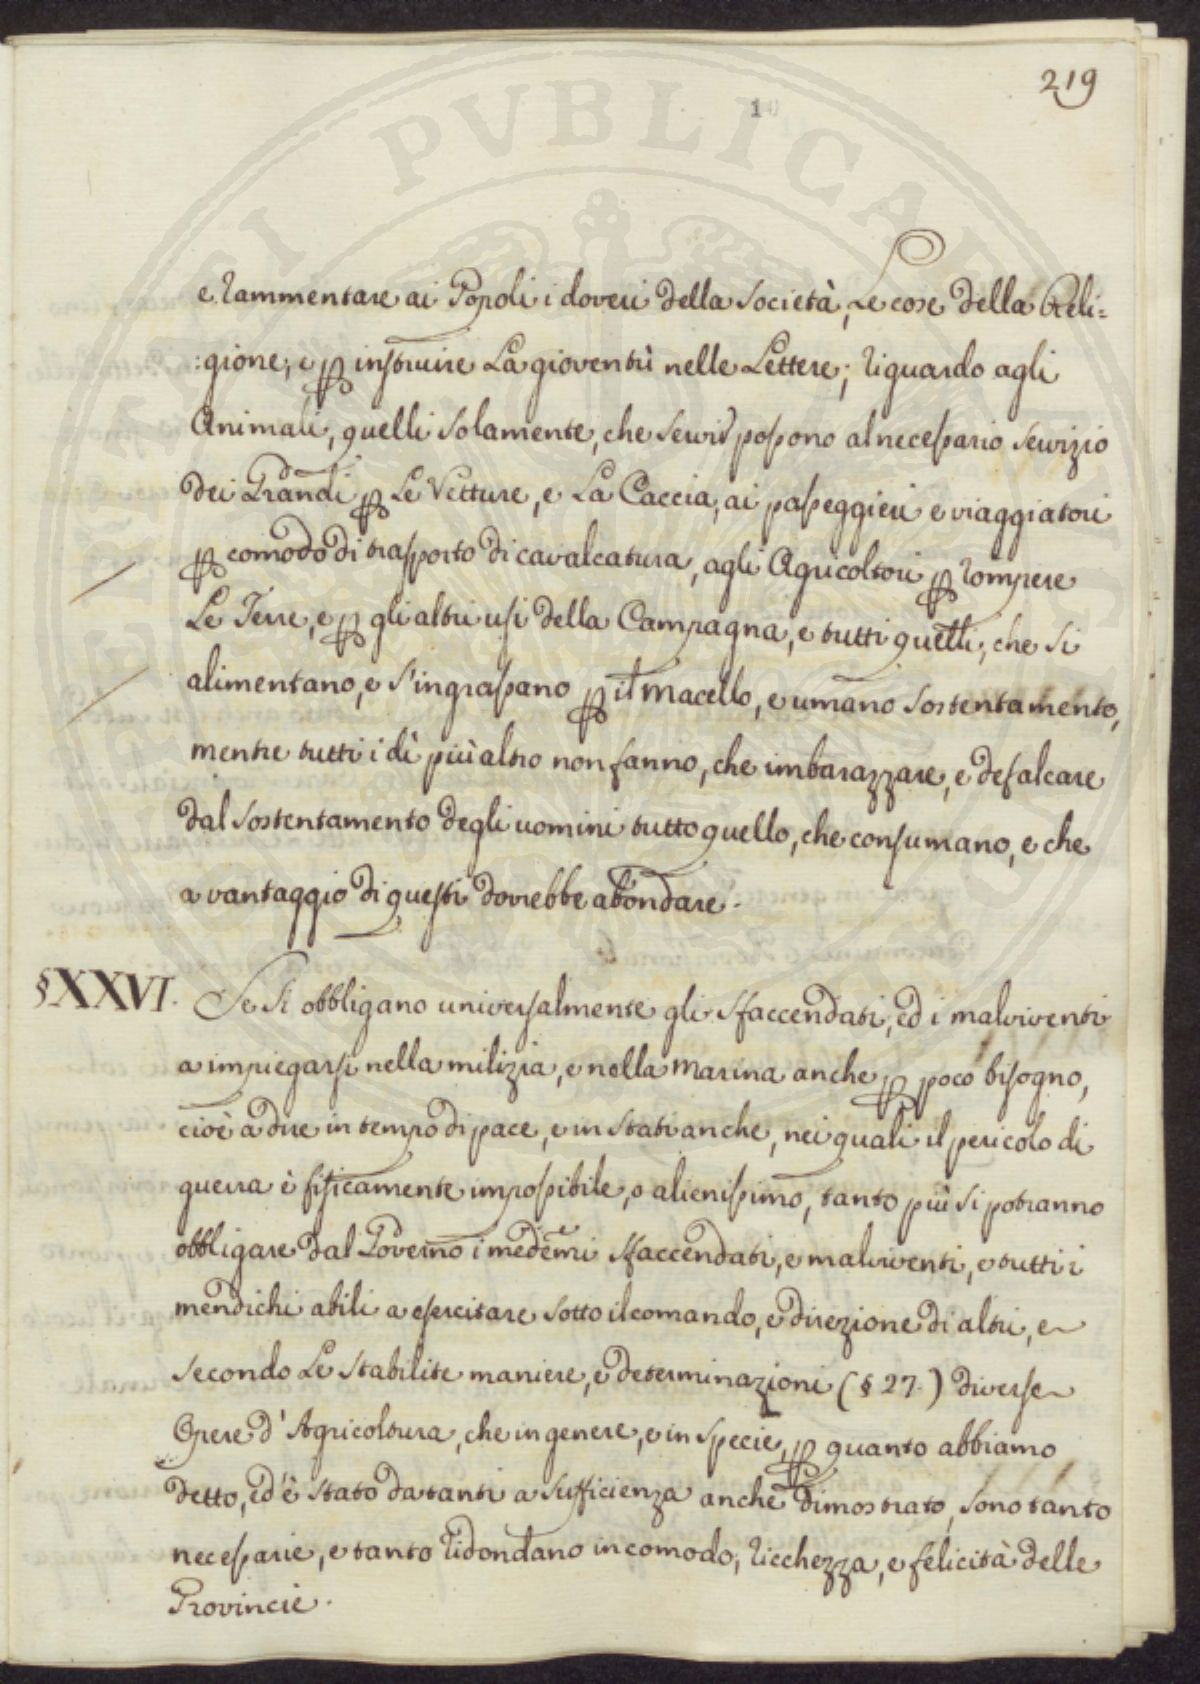 219
10
PVBLICAE
e rammentare ai Popoli i doveri della Società, Le cose della Reli=
:gione; e ꝑ instruire La gioventù nelle Lettere; riguardo agli
Animali, quelli solamente, che servir possono al necessario servizio
dei Grandi ꝑ Le Vetture, e La Caccia, ai passeggieri e viaggiatori
ꝑ comodo di trasporto di cavalcatura, agli Agricoltori ꝑ rompere
Le Terre, e ꝑ gli altri usi della Campagna, e tutti quelli, che si
alimentano, e s'ingrassano ꝑ il macello, e umano sostentamento,
mentre tutti i dì più altro non fanno, che imbarazzare, e defalcare
dal sostentamento degli uomini tutto quello, che consumano, e che
a vantaggio di questi dovrebbe abondare.
§XXVI. Se si obbligano universalmente gli sfaccendati, ed i malviventi
a impiegarsi nella milizia, e nella marina anche ꝑ poco bisogno,
cioè a dire in tempo di pace, e in stati anche, nei quali il pericolo di
guerra è fisicamente impossibile, o alienissimo, tanto più si potranno
obbligare dal Governo i medemi sfaccendati, e malviventi, e tutti i
mendichi abili a esercitare sotto il comando, e direzione di altri, e
secondo Le stabilite maniere, e determinazioni (§ 27.) diverse
Opere d'Agricoltura, che in genere, e in specie, ꝑ quanto abbiamo
detto, ed è stato da tanti a sufficienza anche dimostrato, sono tanto
necessarie, e tanto ridondano in comodo, ricchezza, e felicità delle
Provincie.